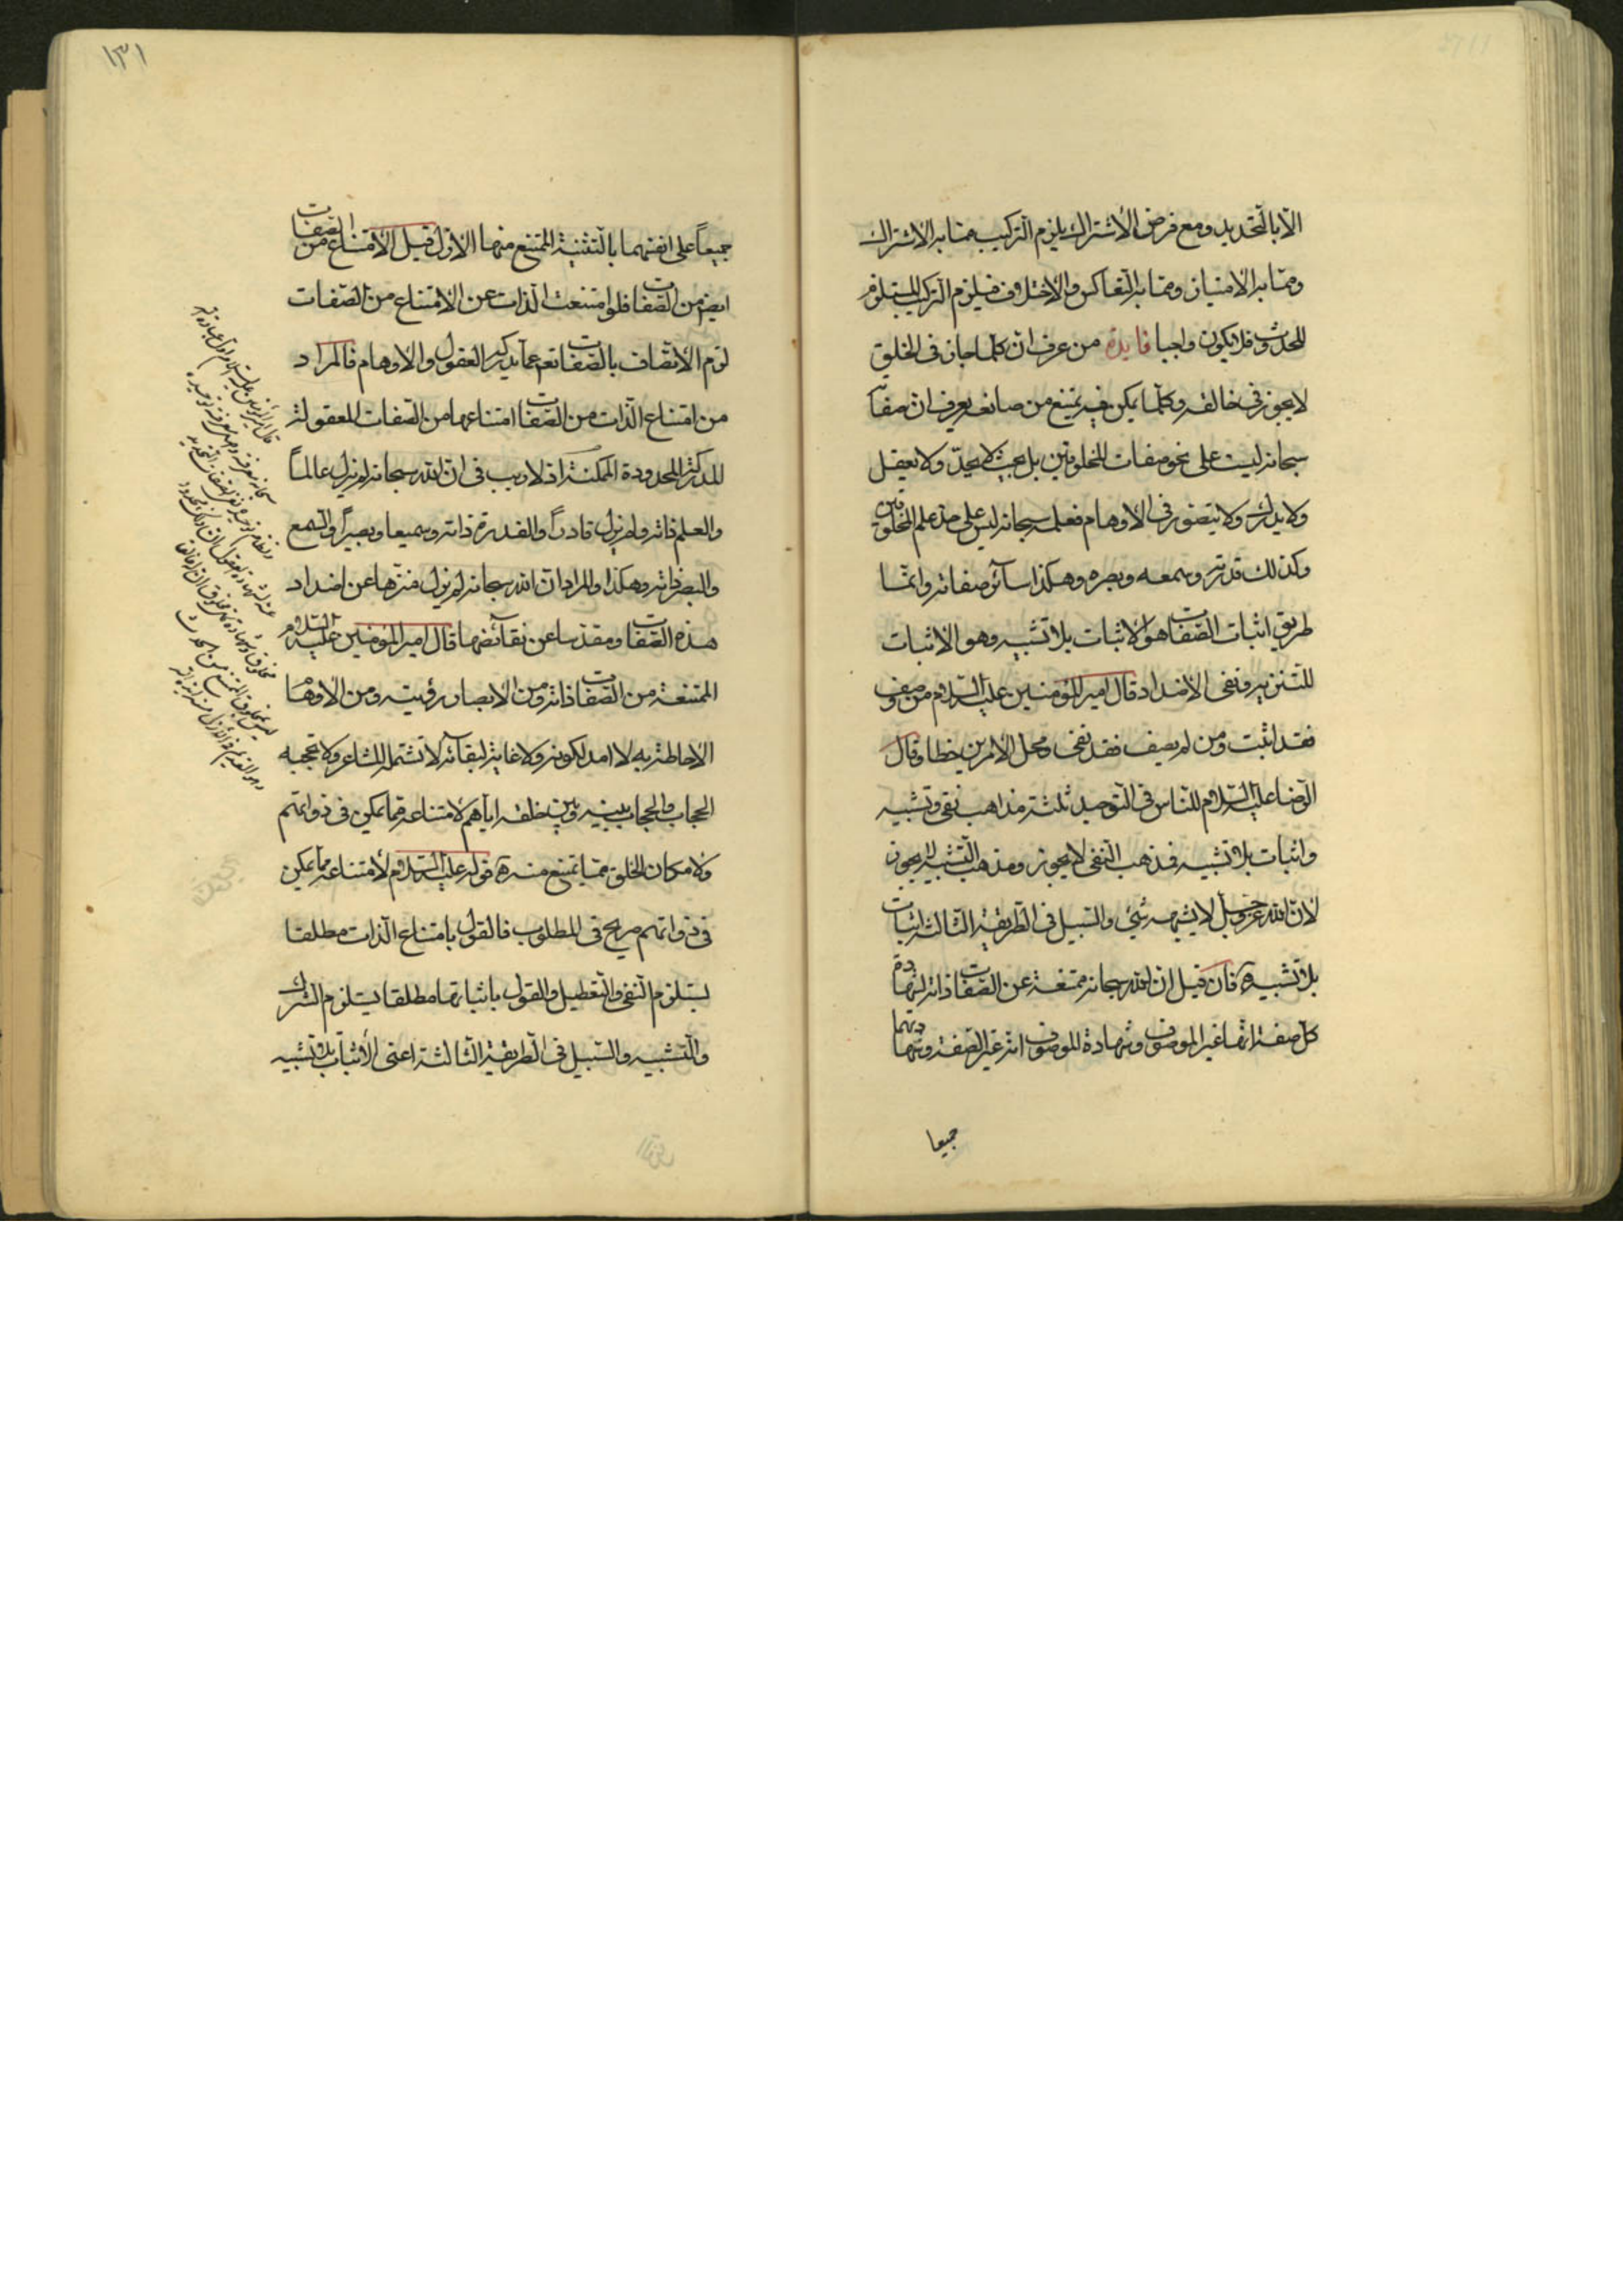 الّا بالتّحديد ومع فرض الاشتراك يلزم التركيب ممّا به الاشتراك
وممّا به الامتياز وممّا به التعاكس والاختلاف فيلزم التركيب المستلزم
للحدوث فلا يكون واجبا فايدة من عرف ان كلّما جاز فى الخلق
لا يجوز فى خالقه وكلّما يمكن فيه يمتنع من صانعه يعرف ان صفاته
سبحانه ليست على نحو صفات المخلوقين بل بحيث لا يحدّ ولا يعقل
ولا يدرك ولا يتصوّر فى الاوهام فعلمه سبحانه ليس على حدّ علم المخلوقين
وكذلك قدرته وسمعه وبصره وهكذا سائر صفاته وانّما
طريق اثبات الصّفات هو الاثبات بلا تشبيه وهو الاثبات
للتنزيه ونفى الاضداد قال امير المؤمنين عليه السّلام من وصف
فقد اثبت ومن لم يصف فقد نفى ومحلّ الامرين خطا وقال
الرّضا عليه السّلام للنّاس فى التّوحيد ثلثة مذاهب نفى وتشبيه
واثبات بلا تشبيه فمذهب النّفى لا يجوز ومذهب التّشبيه لا يجوز
لانّ الله عزّ وجلّ لا يشبهه شئ والسّبيل فى الطّريقة الثّالثة اثبات
بلا تشبيه فان قيل انّ الله سبحانه ممتنعة عن الصّفات ذاته لشهادة
كلّ صفة انّها غير الموصوف وشهادة الموصوف انّه غير الصّفة وشهادتهما
جميعا
١٣١
جميعاً على انفسهما بالتّثنية الممتنع منها الازل قيل الامتناع من الصّفات
ايضا من الصّفات فلو امتنعت الذّات عن الامتناع من الصّفات
لزم الاتّصاف بالصّفات تعم عمّا يدركه العقول والاوهام فالمراد
من امتناع الذّات من الصّفات امتناعها من الصّفات المعقولة
المدركة المحدودة الممكنة اذ لا ريب فى انّ الله سبحانه لم يزل عالماً
والعلم ذاته ولم يزل قادراً والقدرة ذاته وسميعا وبصيراً والسّمع
والبصر ذاته وهكذا والمراد انّ الله سبحانه لم يزل منزّها عن اضداد
هذه الصّفات ومقدّسا عن نقائضها قال امير المؤمنين عليه السّلام
الممتنعة من الصّفات ذاته ومن الابصار رؤيته ومن الاوهام
الاحاطة به لا امد لكونه ولا غاية لبقائه لا تشتمله المشاعر ولا تحجبه
الحجاب والحجاب بينه وبين خلقه ايّاهم لامتناعه ممّا يمكن فى ذواتهم
ولامكان الخلق ممّا يمتنع منه قوله عليه السّلام لامتناعه ممّا يمكن
فى ذواتهم صريح فى المطلوب فالقول بامتناع الذّات مطلقا
يستلزم النّفى والتّعطيل والقول باثباتها مطلقا يستلزم الشرك
والتّشبيه والسّبيل فى الطّريقة الثّالثة اعنى الاثبات بلا تشبيه